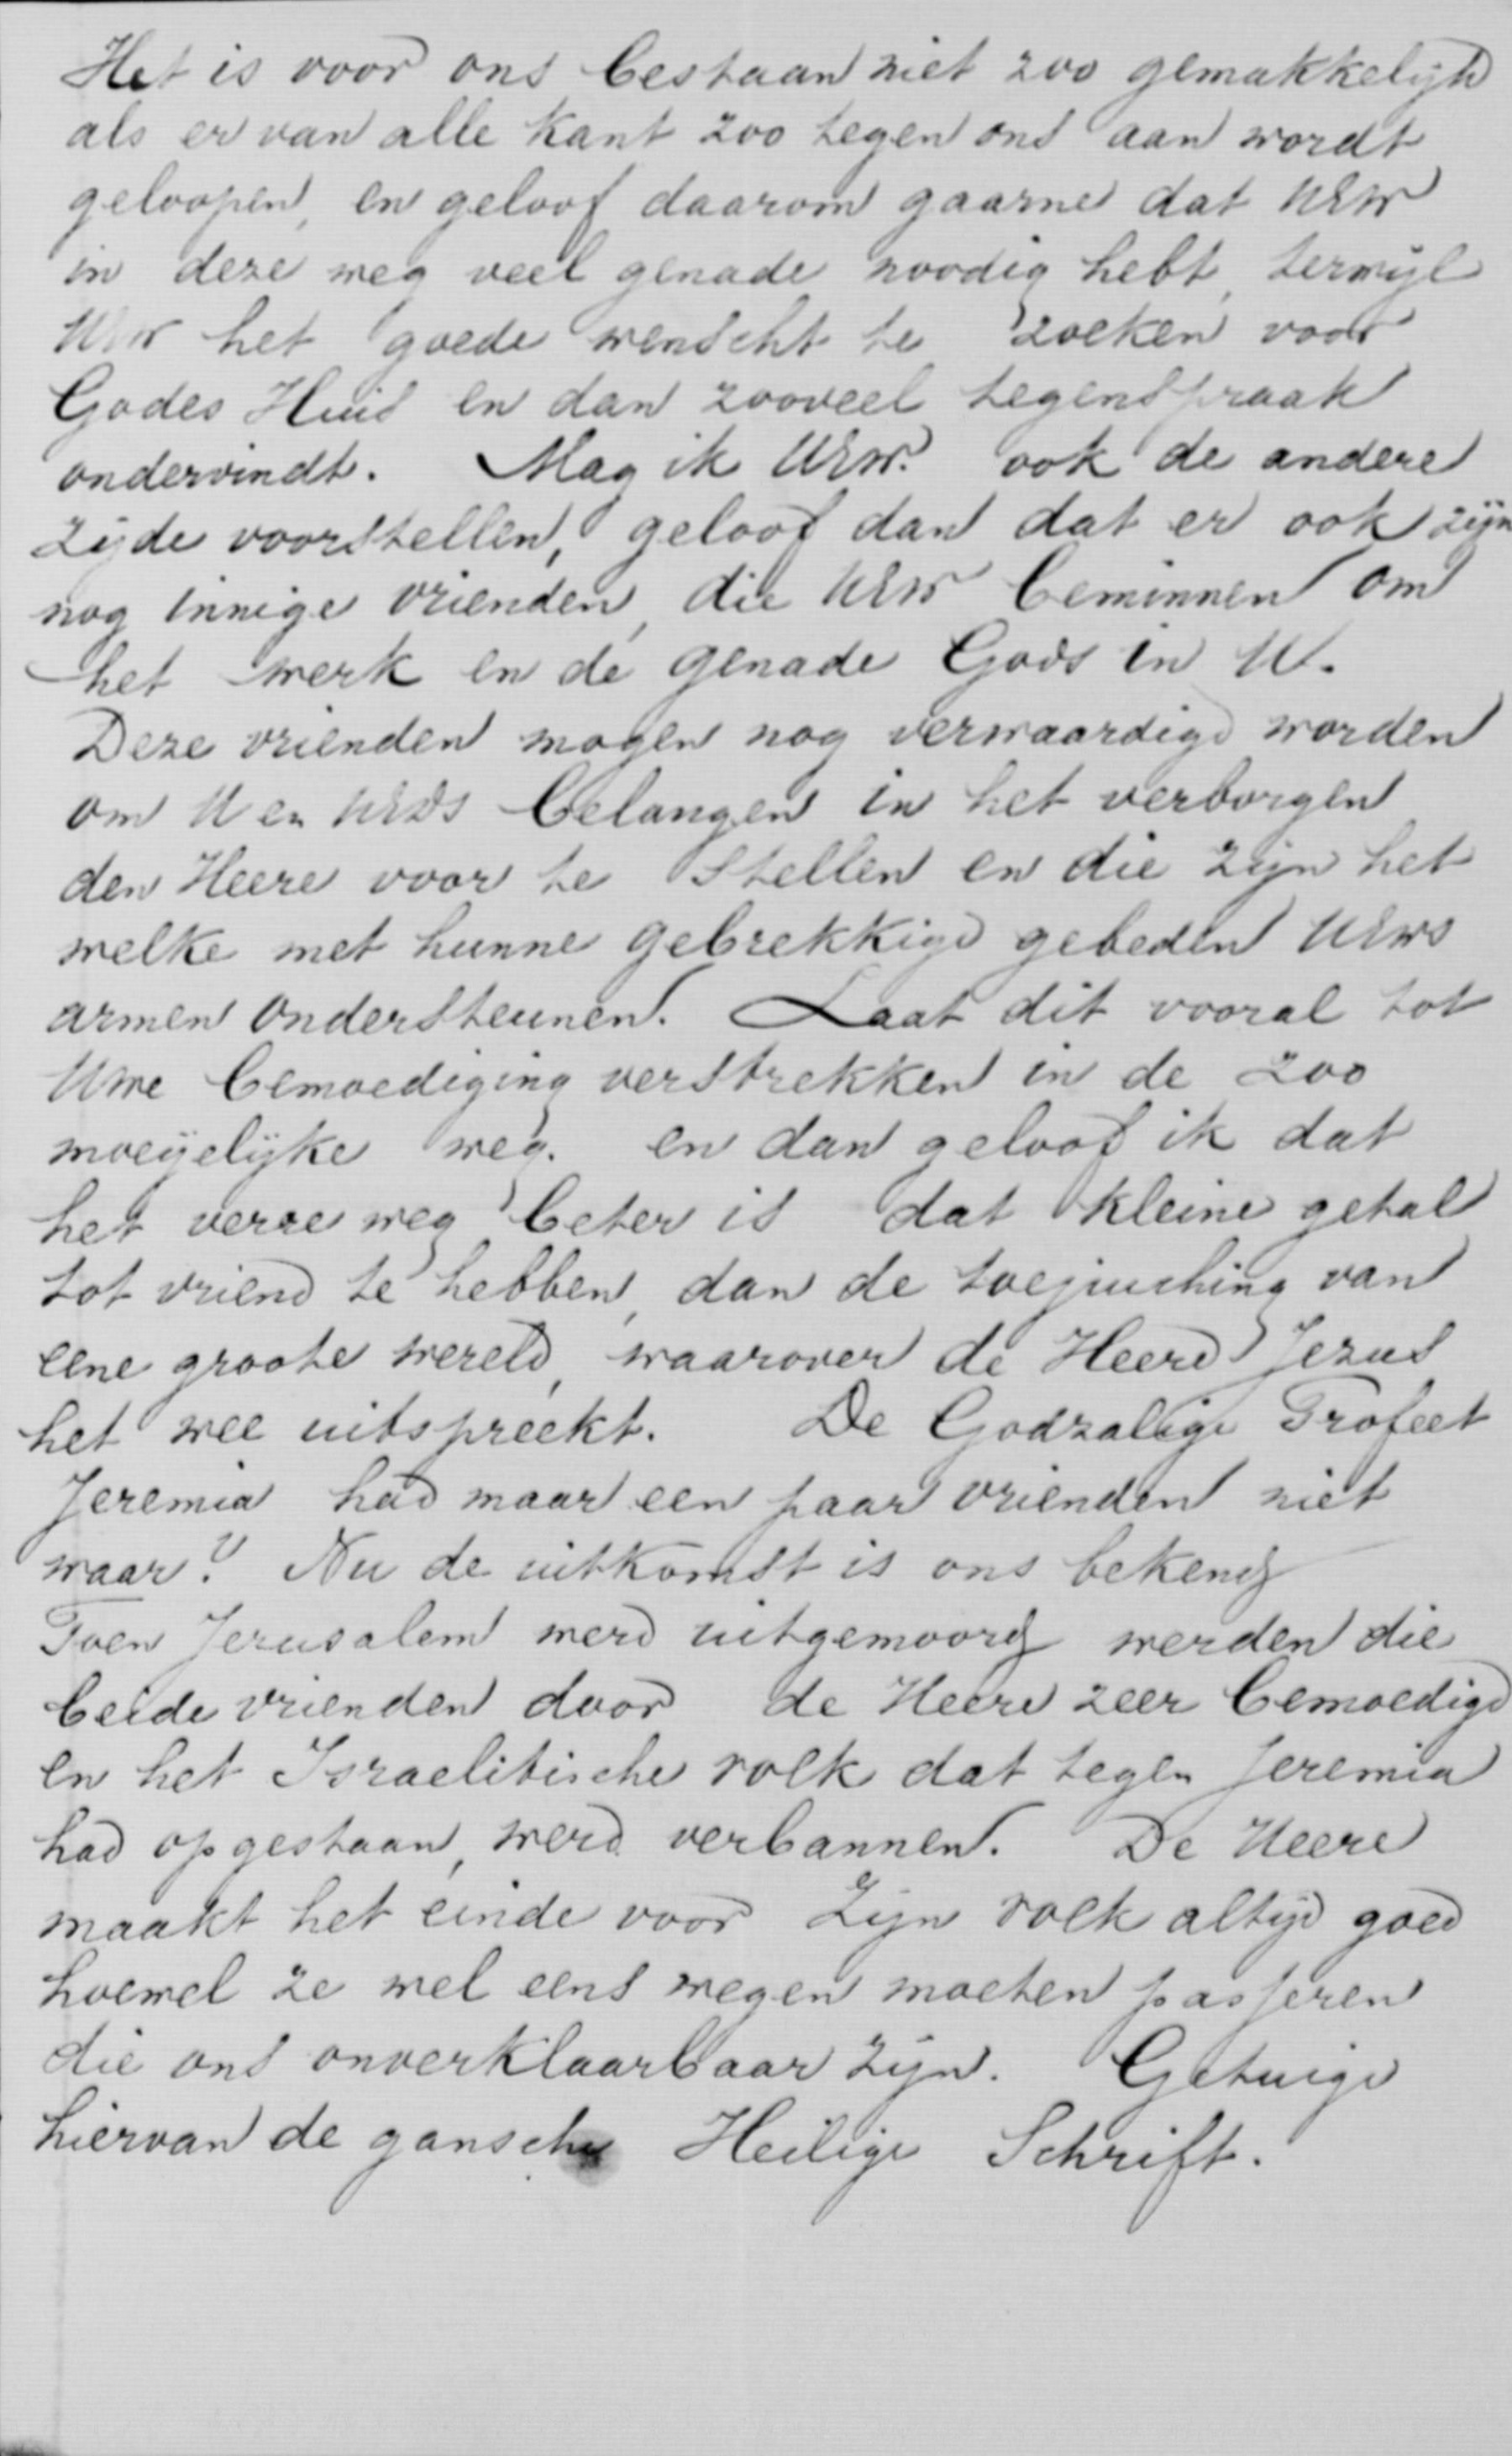 Het is voor ons bestaan niet zoo gemakkelijk
als er van alle kant zoo tegen ons aan wordt
geloopen, en geloof daarom gaarne dat UEw
in deze weg veel genade noodig hebt, terwijl
UEw het goede wenscht te zoeken voor
Godes Huis en dan zooveel tegenspraak
ondervindt. Mag ik UEw. ook de andere
zijde voorstellen, geloof dan dat er ook zijn
nog innige vrienden, die UEw beminnen om
het werk en de genade Gods in U.
Deze vrienden mogen nog verwaardigd worden
om U en belangen in het verborgen
den Heere voor te stellen en die zijn het
welke met hunne gebrekkige gebeden UEws
armen ondersteunen. Laat dit vooral tot
Uwe bemoediging verstrekken in de zoo
moeijelijke weg. en dan geloof ik dat
het verre weg beter is dat kleine getal
tot vriend te hebben, dan de toejuiching van
eene groote wereld, waarover de Heere Jezus
het wee uitspreekt. De Godzalige Profeet
Jeremia had maar een paar vrienden niet
waar? Nu de uitkomst is ons bekend
Toen Jerusalem werd uitgemoord werden die
beide vrienden door de Heere zeer bemoedigd
en het Israelitische volk dat tegen Jeremia
had opgestaan, werd verbannen. De Heere
maakt het einde voor Zijn volk altijd goed
hoewel ze wel eens wegen moeten passeren
die ons onverklaarbaar zijn. Getuige
hiervan de gansche Heilige Schrift.